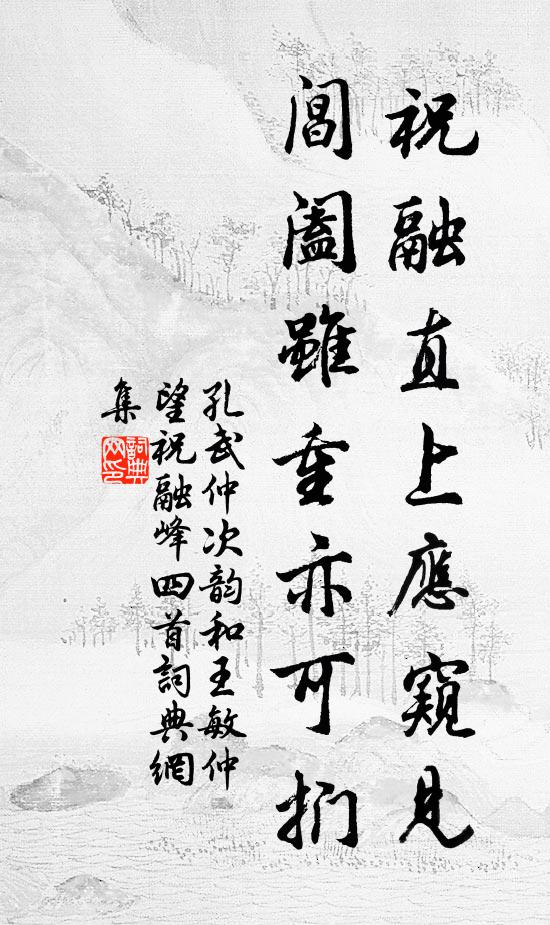 祝融直上應窺見
閶闔雖重亦可捫
孔武仲次韵和王敏仲
望祝融峰四首詞典網
集
詞典網印